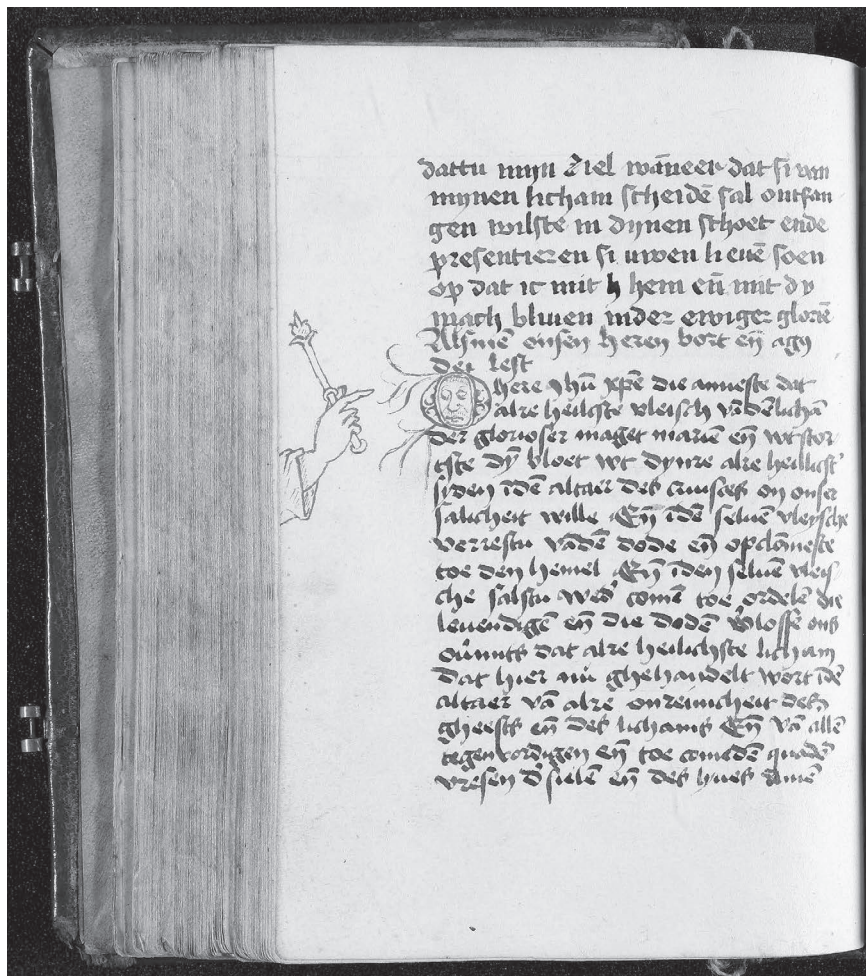 dattu myn ziel wāneer dat si van
mynen licham scheidē sal ontfan
gen wilste in dynen schoet ende
presentieren si uwen lieuē soen
op dat ic mit h hem eñ mit dy
mach bliuen inder ewiger gloriē
Alsmē onsen heren bort eñ agn
dei lest
O here ihū xpē die annēste dat
alre heilichste vleisch vādē licham
der glorioser maget mariē eñ wtstor
tste dȳ bloet wt dynre alre heilichst
syden īdē altaer des cruuses on onser
salicheit wille Eñ īdē seluē vleysche
verrestu vādē dode eñ opclōmeste
toe den hemel Eñ īden seluē vleis
che salstu wed' comē toe ordelen die
leuendigē eñ die dodē v'losse ons
ou'mits dat alre heilichste licham
dat hier nu ghehandelt wort īdē
altaer vā alre onreinicheit des
gheests eñ des lichams Eñ vā allē
tegenwordigen eñ toe comēdē quadē
vresen d' sielē eñ des liues amē